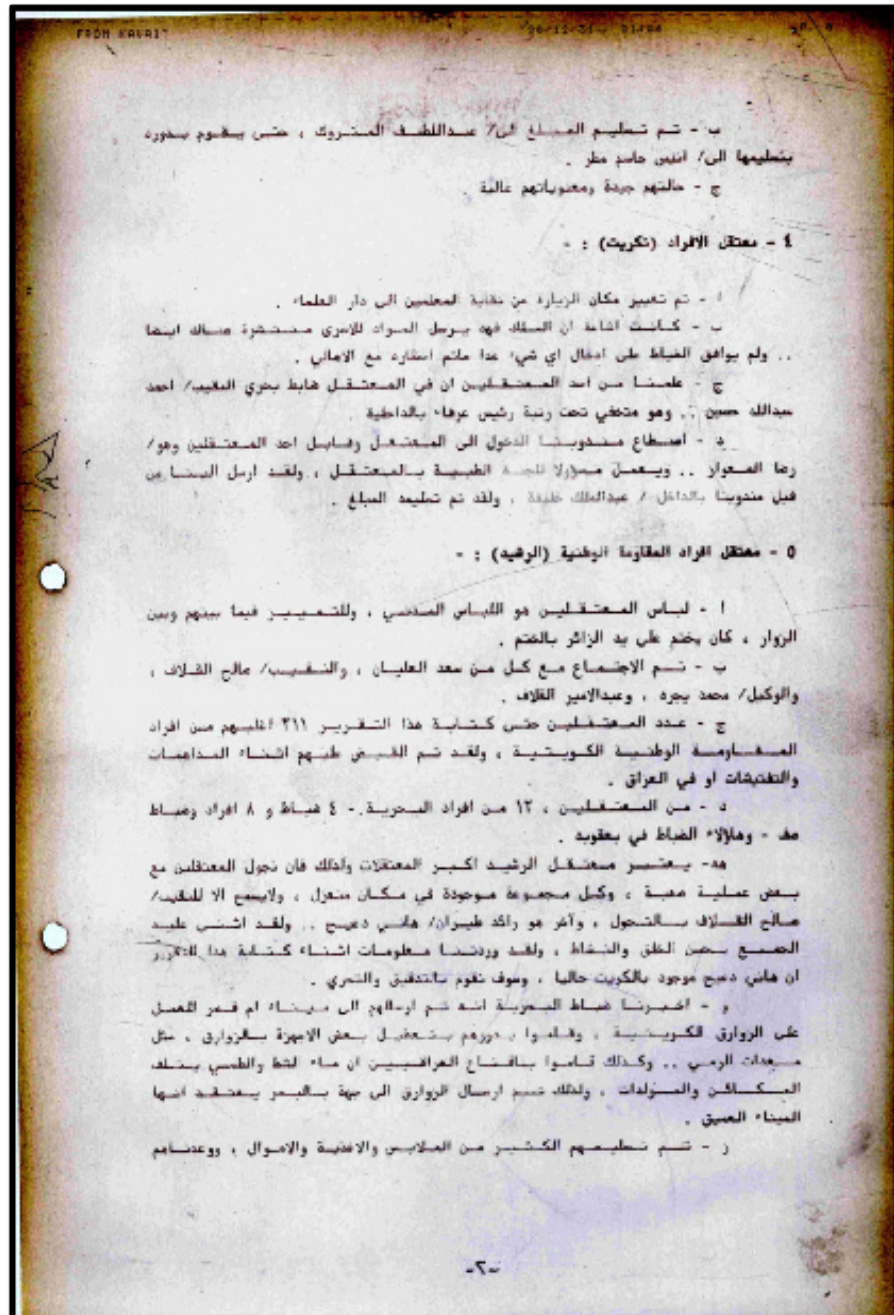 FROM KUWAIT
ب - تم تسليم المبلغ الى/ عبداللطيف المتروك ، حتى يقوم بدوره
بتسليمها الى/ انيس جاسم مطر .
ج - حالتهم جيدة ومعنوياتهم عالية .
٤ - معتقل الافراد (تكريت) : -
ا - تم تغيير مكان الزيارة من نقابة المعلمين الى دار العلماء .
ب - كانت اشاعة ان الملك فهد يرسل المواد للاسرى منتشرة هناك ايضا
.. ولم يوافق الضباط على ادخال اي شيء عدا ماتم احضاره مع الاهالي .
ج - علمنا من احد المعتقلين ان في المعتقل ضابط بحري النقيب/ احمد
عبدالله حسين .. وهو متخفي تحت رتبة رئيس عرفاء بالداخلية .
د - استطاع مندوبنا الدخول الى المعتقل وقابل احد المعتقلين وهو/
رضا الصواغ .. ويعمل مسؤولا للجنة الطبية بالمعتقل ، ولقد ارسل الينا من
قبل مندوبنا بالداخل / عبدالملك خليفة . ولقد تم تسليمه المبلغ .
٥ - معتقل افراد المقاومة الوطنية (الرشيد) : -
ا - لباس المعتقلين هو اللباس المدني ، وللتمييز فيما بينهم وبين
الزوار ، كان يختم على يد الزائر بالختم .
ب - تم الاجتماع مع كل من سعد العليان ، والنقيب/ صالح القلاف ،
والوكيل/ محمد بجره ، وعبدالامير القلاف .
ج - عدد المعتقلين حتى كتابة هذا التقرير ٣١١ اغلبهم من افراد
المقاومة الوطنية الكويتية ، ولقد تم القبض عليهم اثناء المداهمات
والتفتيشات او في العراق .
د - من المعتقلين ، ١٢ من افراد البحرية - ٤ ضباط و ٨ افراد وضباط
صف - وهؤلاء الضباط في بعقوبه .
هـ- يعتبر معتقل الرشيد اكبر المعتقلات ولذلك فان تجول المعتقلين مع
بعض عملية صعبة ، وكل مجموعة موجودة في مكان منعزل ، ولايسمح الا للنقيب/
صالح القلاف بالتجول ، وآخر هو رائد طيران/ هاني دعيج .. ولقد اثنى عليه
الجميع بحسن الخلق والنشاط ، ولقد وردتنا معلومات اثناء كتابة هذا التقرير
ان هاني دعيج موجود بالكويت حاليا ، وسوف نقوم بالتدقيق والتحري .
و - اخبرنا ضباط البحرية انه تم ارسالهم الى ميناء ام قصر للعمل
على الزوارق الكويتية ، وقاموا بدورهم بتعطيل بعض الاجهزة بالزوارق ، مثل
معدات الرمي .. وكذلك قاموا باقناع العراقيين ان ماء الشط والطمي يتلف
المكائن والمولدات ، ولذلك تم ارسال الزوارق الى جهة بالبحر يعتقد انها
الميناء العميق .
ز - تم تسليمهم الكثير من الملابس والاغذية والاموال ، ووعدناهم
-٢-